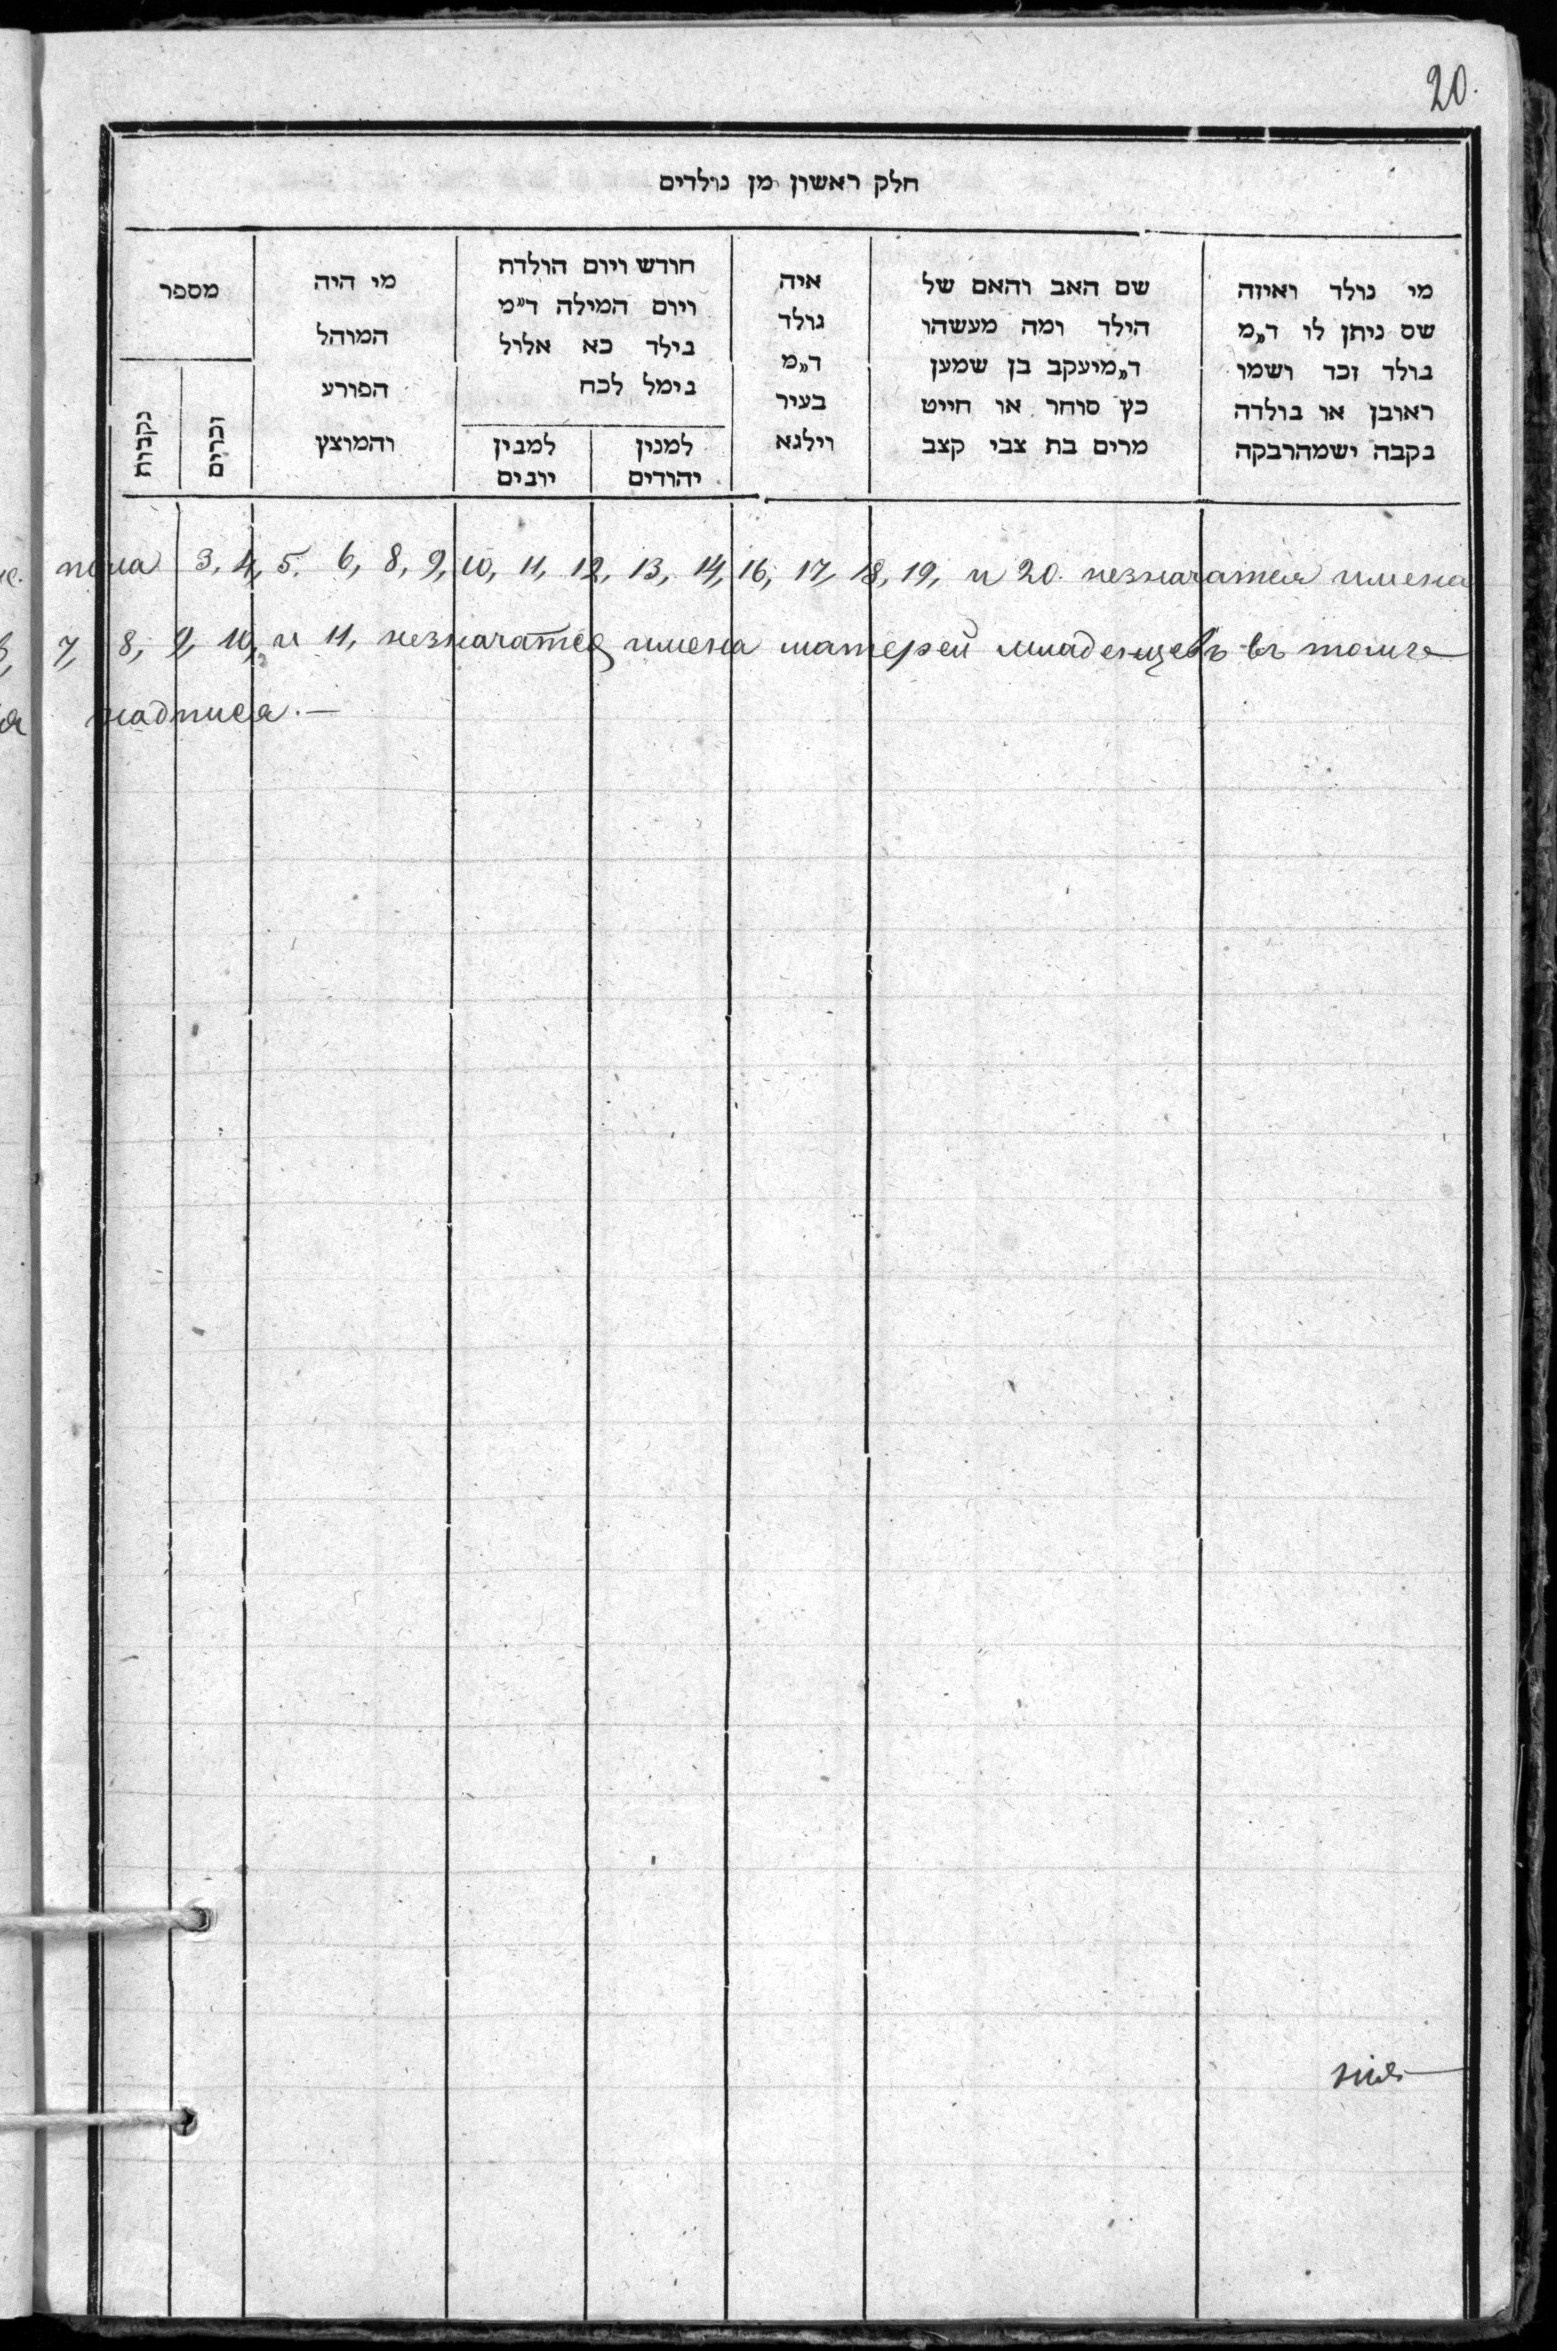 20.
חלק ראשון מן נולדים
מי נולד ואיזה
שם ניתן לו ד״מ
נולד זכר ושמו
ראובן או נולדה
נקבה ישמהרבקה
שם האב והאם של
הילד ומה מעשהו
ד״מיעקב בן שמען
כץ סוחר או חייט
מרים בת צבי קצב
איה
נולד
ד״מ
בעיר
וילנא
חודש ויום הולדת
ויום המילה ד״מ
נילד כא אלול
נימל לכח
למנין
יהודים
למנין
יונים
מי היה
המוהל
הפורע
והמוצץ
מספר
זכרים
נקבות
пола 3, 4, 5. 6, 8, 9, 10, 11, 12, 13, 14, 16, 17, 18, 19, и 20. незначатся имена
7, 8, 9, 10, и 11, незначатся имена матерей младенцевъ въ томже
надписся. —